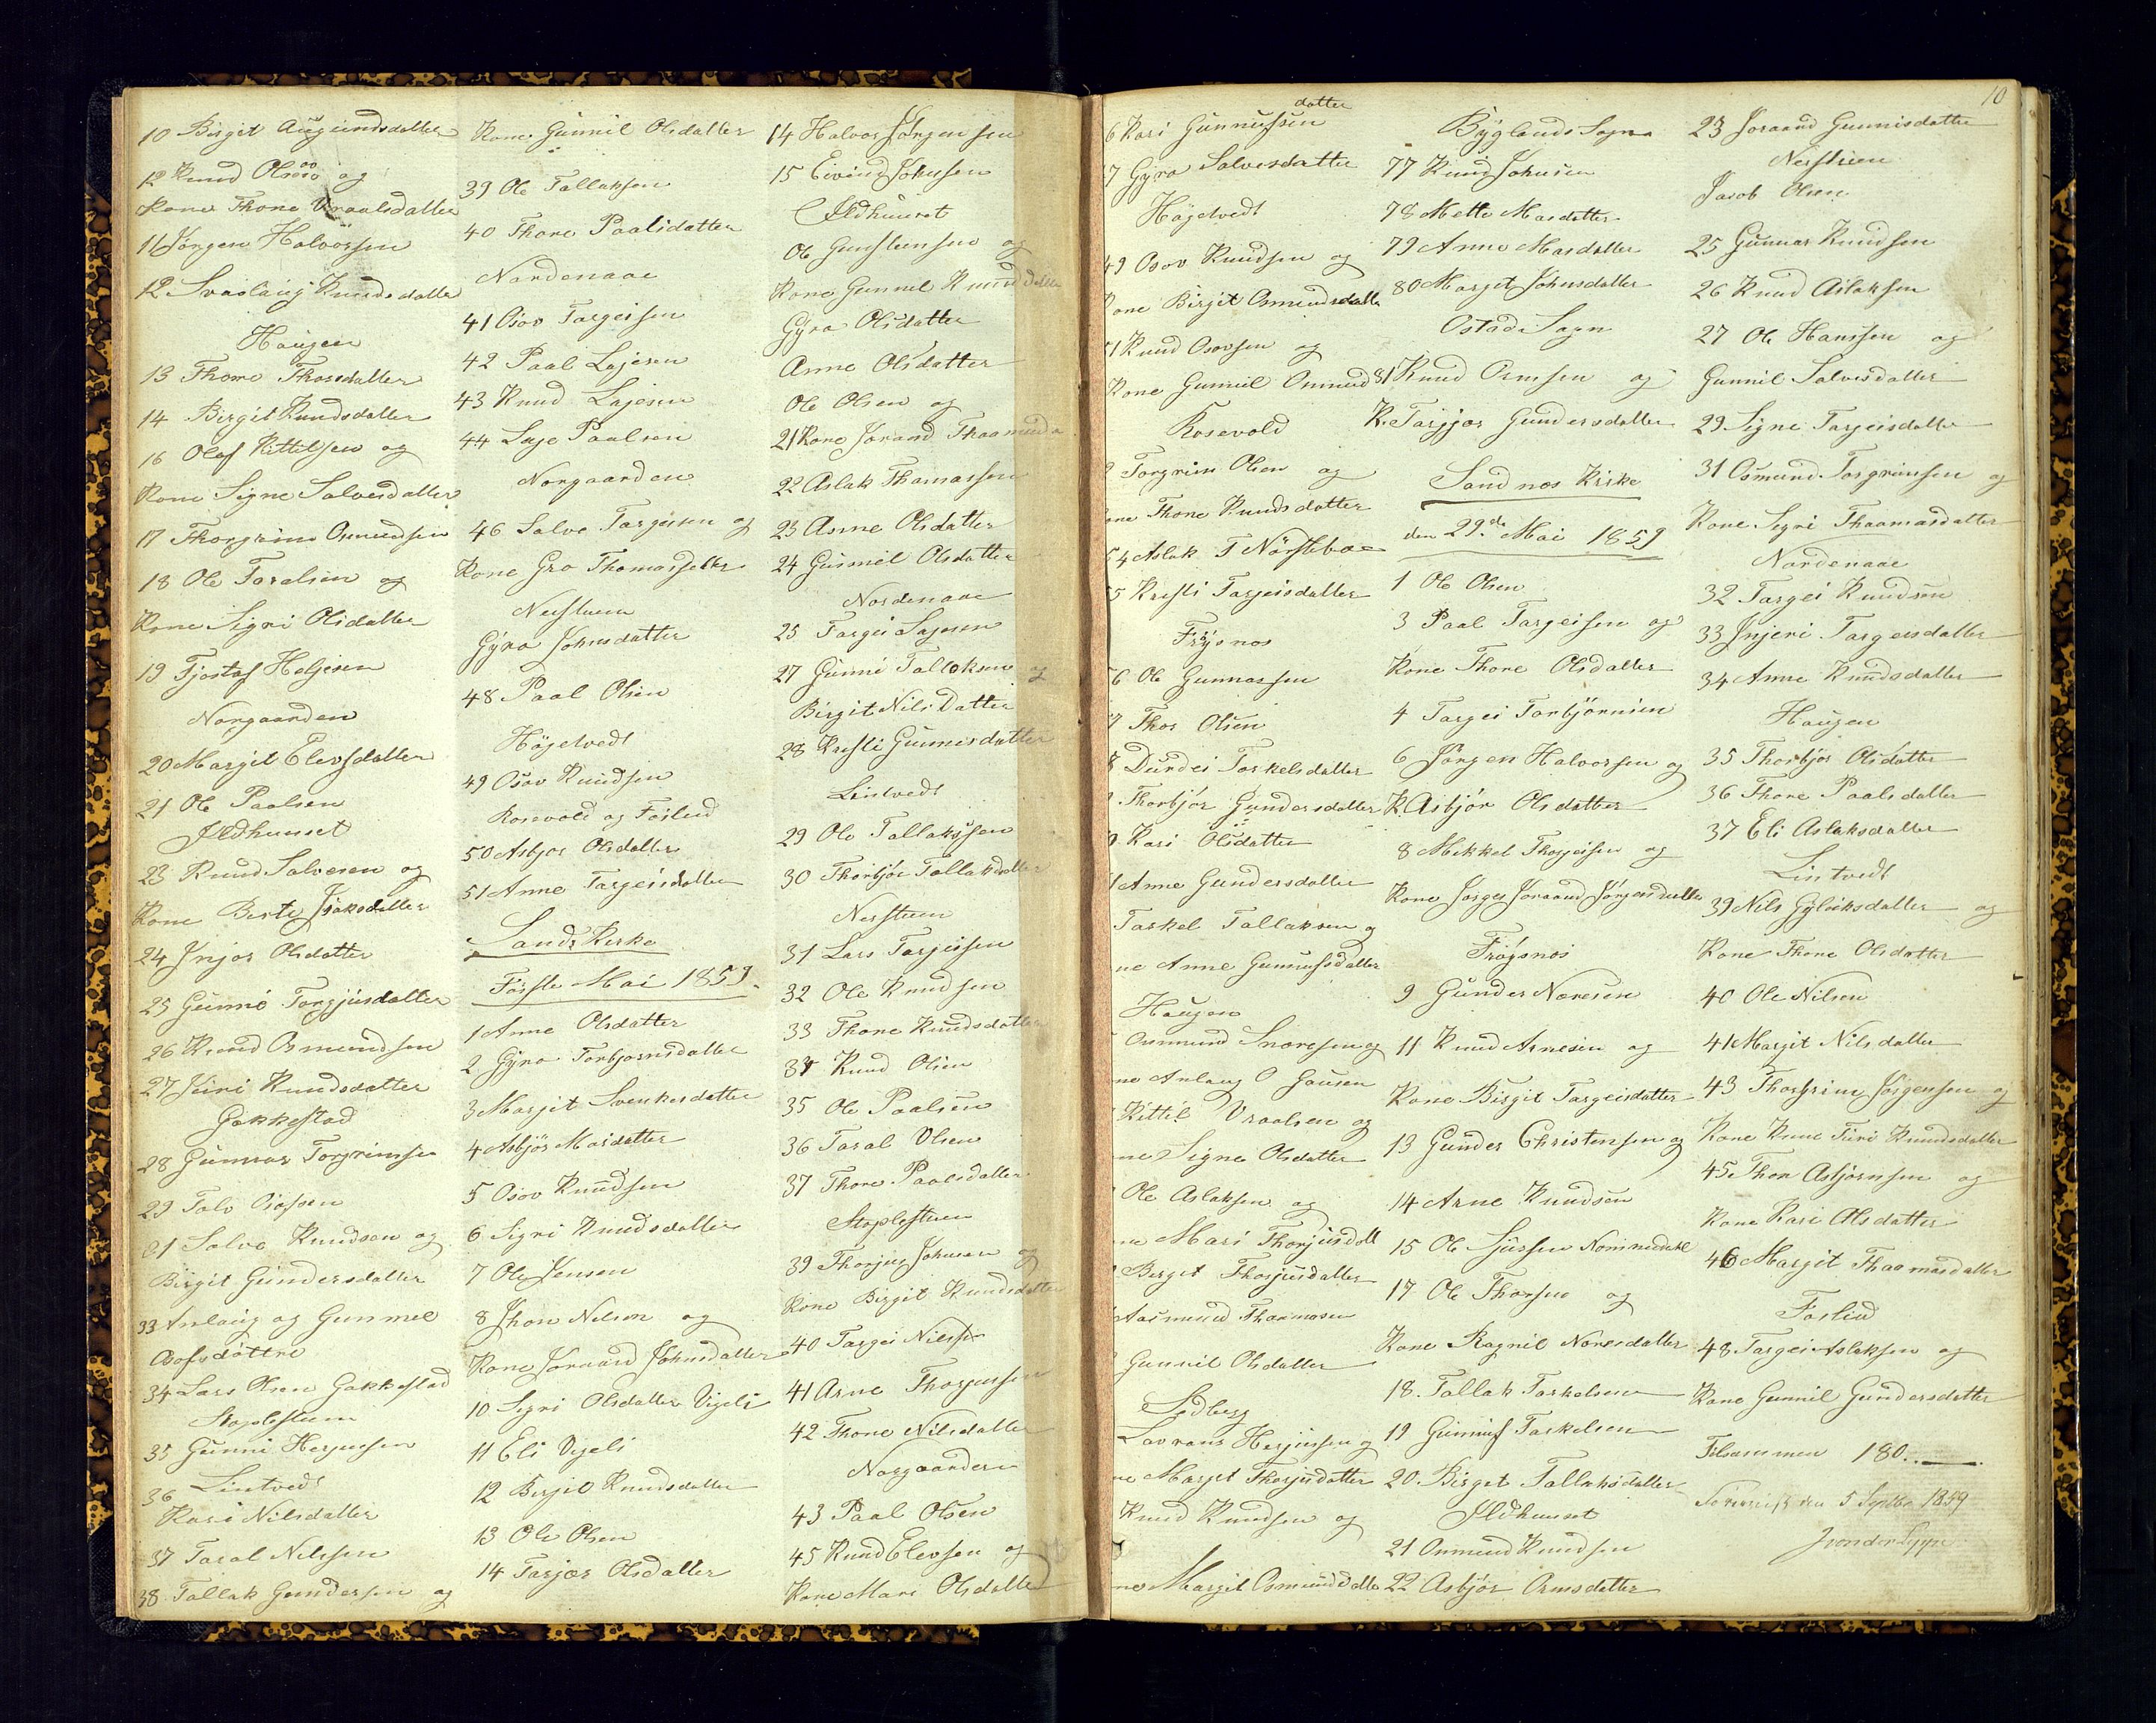 10 Birgit Augundsdatter
12 Knud Olsøsø og
Kone Thone Vraalsdatter
11 Jørgen Halvorsen
12 Svaalaug Knudsdatter
Haugen
13 Thore Thorsdatter
14 Birgit Knudsdatter
16 Olaf Kittelsen og
Kone Signe Salvesdatter
17 Thorgrim Osmundsen
18 Ole Taralsen og
Kone Sigri Olsdatter
19 Tjostaf Helgesen
Norgaarden
20 Margit Elevsdatter
21 Ole Paalsen
Ildhuuset
23 Knud Salvesen og
Kone Berte Isaksdatter
24 Injor Olsdatter
25 Gunne Torgjusdatter
26 Knud Osmundsen
27 Jeiri Knudsdatter
Gakkestad
28 Gunnar Torgrimse
29 Talv Osofsen
31 Salve Knudson og
Birgit Gundersdatter
33 Anlaug og Gunmel
Osofsdöttre
34 Lars Olsen Gakkestad
Staplestuen
35 Gunni Herjusen
Lintvedt
36
Kari Nilsdatter
37 Taral Nilssen
38 Tallak Gundersen og
Kone Gunnil Olsdatter
39 Ole Tallaksen
40 Thore Paalsdatter
Nordenaae
41 Osov Targeisen
42 Paal Lajesen
43 Knud Lajesen
44 Laje Paalsen
Norgaarden
46 Salve Targeisen og
Kone Gro Thomasdatter
Nerstuen
Gyro Johnsdatter
48 Paal Olsen
Høgetvedt
49 Osov Knudsen
Rosevold og Foslied
50 Asbjor Olsdatter
51 Anne Targeisdatter
Sands Kirke
Første Mai 1859.
1 Anne Olsdatter
2 Gyro Torbjornsdatter
3 Margit Svenkesdatter
4 Asbjør Masdatter
5 Osov Knudsen
6 Sigri Knudsdatter
7 Ole Jensen
8 Jhon Nilson og
Kone Joraand Johnsdatter
10 Sigri Olsdatter Vigeli
11 Eli Vegeli
12 Birgit Knudsdatter
13 Ole Olsen
14 Tarjær Olsdatter
14 Halvor Jørgensen
15 Eivind Johnsen
Ildhuuset
Ole Gunsteinsen og
Kone Gunnel Knudsdatter
Gyro Olsdatter
Anne Olsdatter
Ole Olsen og
21 Kone Jorand Thaamunda
22 Aslak Thomassen
23 Anne Olsdatter
24 Gunmel Olsdatter
Nordenaae
25 Targei Lajesen
27 Gunne Tallaksen og
Birgit Nils Datter
28 Kristi Gunnersdatter
Lintvedt
29 Ole Tallaksen
30 Thorbjør Tallaksdatter
Nerstuen
31 Lars Targeissen
32 Ole Knudsen
33 Thone Knudsdatter
34 Knud Olsen
35 Ole Paalsen
36 Taral Olsen
37 Thore Paalsdatter
Staplestuen
39 Thorjus Johnsen og
Kone Birgit Knudsdatter
40 Targei Nilssen
41 Arne Thorjussen
42 Thone Nilsdatter
Norgaarden
43 Paal Olsen
45 Knud Elevsen og
Kone Mari Olsdatter
10
datter
6 Kari Gunnufsen
7 Gyro Salvesdatter
Høgetvedt
49 Osov Knudsen og
Kone Birgit Osmundsdatte
51 Knud Osovsen og
Kone Gunnil Onmund
Rosevold
Torgrim Olsen og
one Thone Knudsdatter
54 Aslak T Nørstebøe
55 Kristi Tarjeisdatter
Frøysnos
56 Ole Gunnarsen
57 Thor Olsen
8 Durdei Torkelsdatter
Thorbjør Gundersdatter
0 Kari Olsdatter
1 Anne Gundersdatter
Tarkel Tallaksen og
ne Anne Gunnufsdatter
Haugen
Osmund Snaresen og
ne Anlaug O Hausen
Kittil Vraalsen og
ne Signe Olsdatter
Ole Aslaksen og
ne Mari Thorjusdatt
Berget Thorjusdatter
Aasmund Thaamasen
Gunnil Olsdatter
Lidberg
Lavrans Herjusen og
ne Margit Thorjusdatter
Knud Knudsen og
ne Margit Osmundsdatte
Byglands Sogn
77 Knud Johnsen
78 Mette Masdatter
79 Anne Masdatter
80 Margit Johnsdatter
Ostads Sogn
81 Knud Ormsen og
K. Tarjjor Gundersdatter
Sandnos Kirke
den 29de Mai 1859
1 Ole Olsen
3 Paal Targeisen og
Kone Thore Olsdatter
4 Targei Torbjörnsen
6 Jørgen Halvorsen og
K. Asbjör Olsdatter
8 Mekkel Thorjeisen og
Kone Jorges Joraand Jørgensdatter
Frøysnos
9 Gunder Noresen
11 Knud Arnesen og
Kone Birgit Targeisdatter
13 Gunder Christensen og
14 Arne Knudsen
15 Ole Sjursen Nommedal
17 Ole Thorsen og
Kone Ragnil Noresdatter
18. Tallak Tarkelsen
19 Gunnuf Tarkelsen
20. Birget Tallaksdatter
Ildhuuset
21 Onmund Knudsen
22 Asbjör Ormsdatter
23 Joraand Gunnisdatter
Nerstuen
Jacob Olsen
25 Gunnar Knudsen
26 Knud Aslaksen
27 Ole Hanssen og
Gunnil Salvesdatter
29 Signe Targeisdatter
31 Osmund Torgrimsen og
Kone Sigri Thaamasdatter
Nordenaae
32 Targei Knudsen
33 Injeri Targeisdatter
34 Anne Knudsdatter
Haugen
35 Thorbjør Olsdatter
36 Thore Paalsdatter
37 Eli Aslaksdatter
Lintvedt
39 Nils Gjlaksdatter og
Kone Thone Olsdatter
40 Ole Nilsen
41 Margit Nilsdatter
43 Thorgrim Jørgensen og
Kone Kone Turi Knudsdatter
45. Thor Asbjørnsen og
Kone Kari Olsdatter
46 Margit Thaamasdatter
Foslied
48 Targei Aslaksen og
Kone Gunnil Gundersdatter
Tilsammen 180..
den 5 Septbr 1859
J von der Lippe